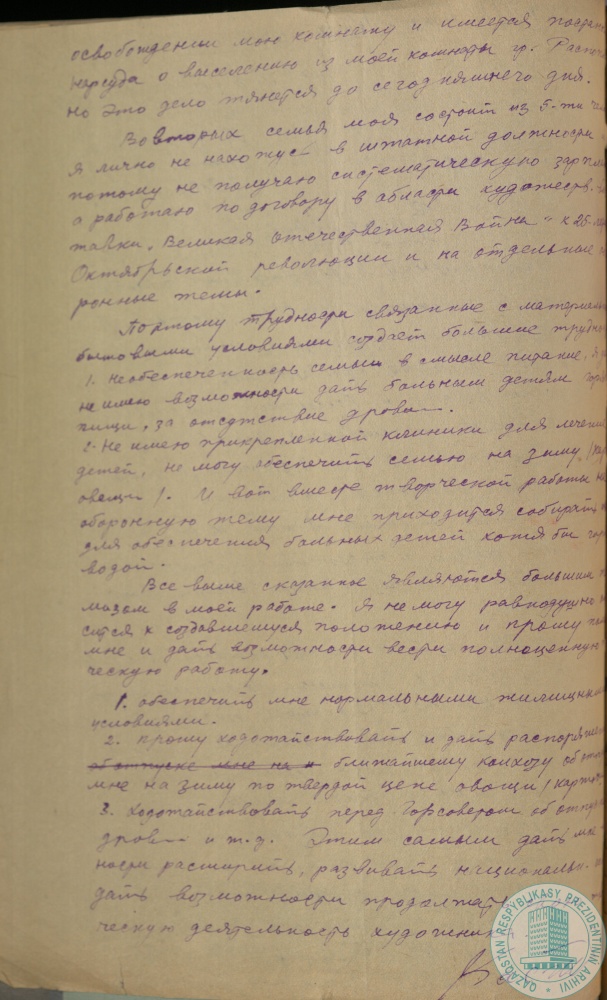 освобождении мою комнату и имеется
нарсуда о выселению из моей комнаты гр.
но это дело тянется до сегодняшнего дня.
Вовторых семья моя состоит из 5-ти
я лично не нахожус в штатной должности
потому не получаю систематическую
а работаю по договору в области художеств.
тавки, "Великая отечественная Война" к 25-
Октябрьской революции и на отдельные
ронные темы.
Поэтому трудности связанные с
бытовыми условиями создает большие
1. необеспеченность семьи в смысле питание,
не имею возможности дать больным детям
пищи, за отсутствие дрова.
2. Не имею прикрепленной клиники для
детей, не могу обеспечить семью на зиму
овощи/. И вот вместе творческой работы
оборонную тему мне приходится собирать
для обеспечения больных детей хотя бы
водой.
Все выше сказанное являются большим
мозом в моей работе. Я не могу равнодушно
сится к создавшемуся положению и прошу
мне и дать возможности вести
ческую работу.
1. обеспечить мне нормальными
условиями.
2. прошу ходотайствовать и дать
об отпуске мне на ближайшему колхозу
мне на зиму по твердой цене овощи
3. Ходотайствовать перед Горсоветом об
дров и т.д. Этим самым дать
ности расширить, развивать
дать возможности
ческую деятельность
QAZAQSTAN RESPÝBLIKASY PREZIDENTINIŃ ARHIVI